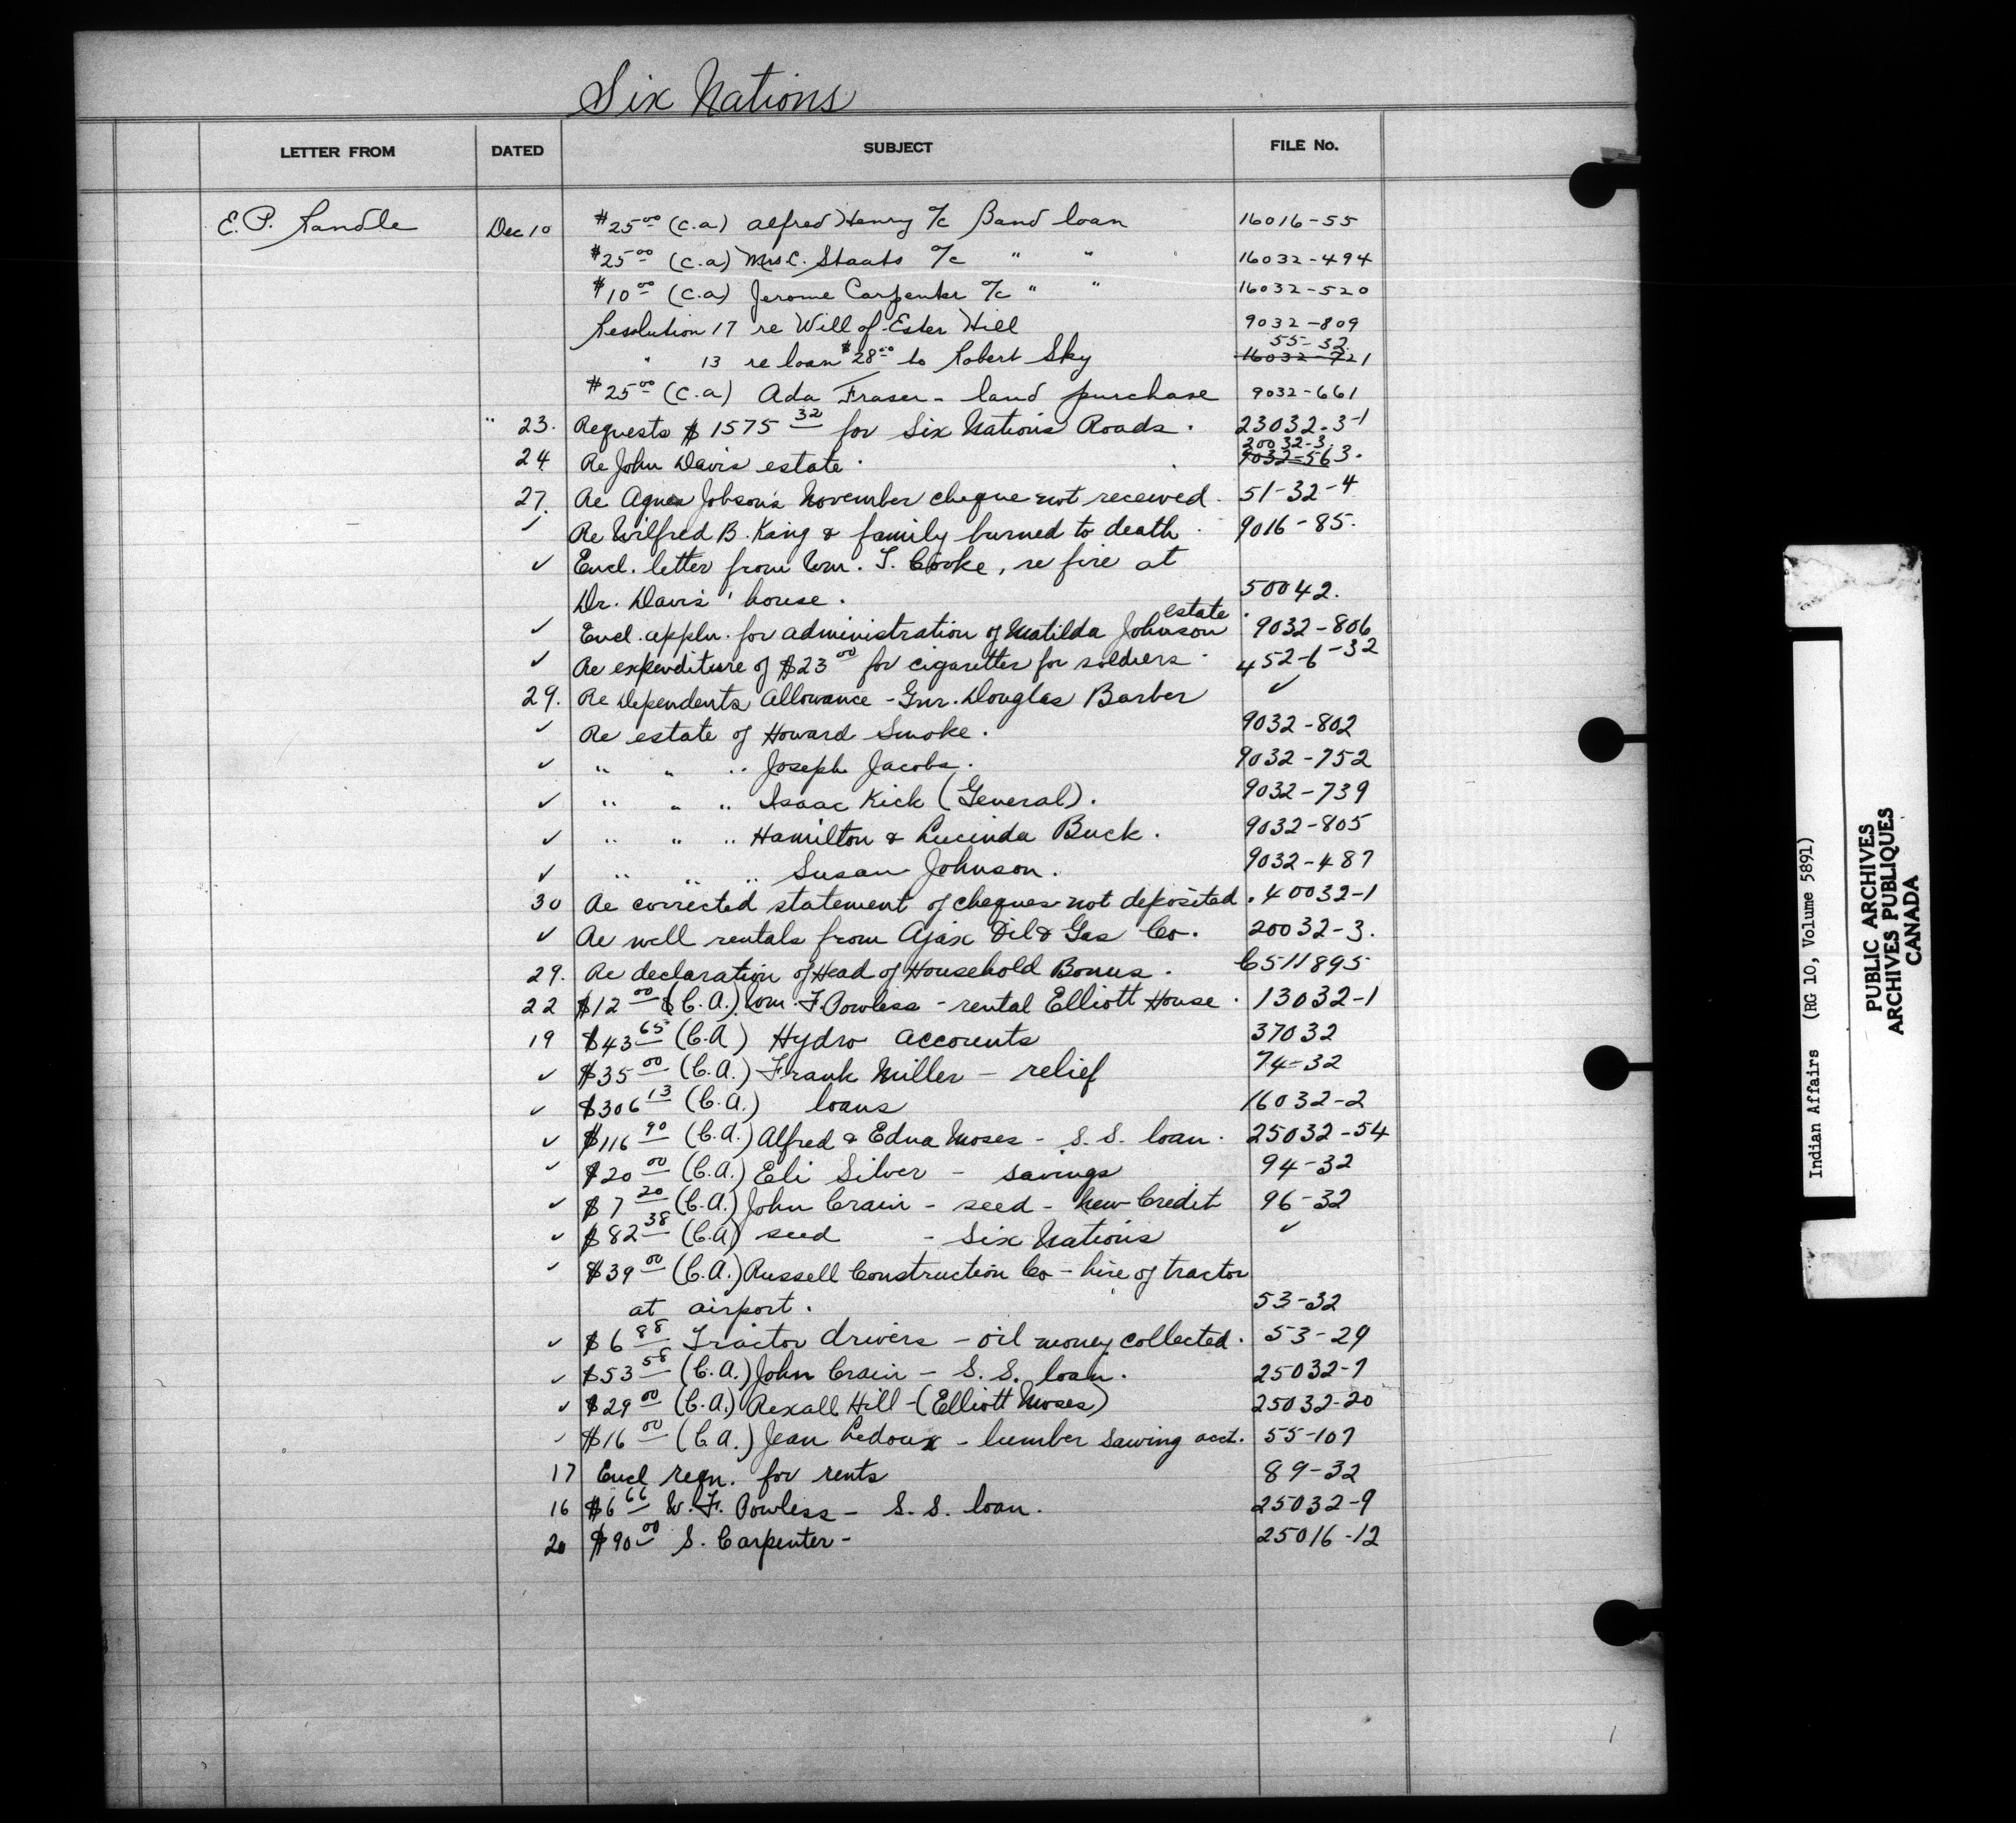 Six Nations
LETTER FROM DATED SUBJECT FILE No.
E. P. Randle Dec 10 $25.00 (C.A) Alfred Henry a/c Band loan 16016-55
$25.00 (C.A) Mrs C. Staats a/c " " 16032-494
$10.00 (C.A) Jerome Carpenter a/c " " 16032-520
Resolution 17 re Will of Ester Hill 9032-809
55-32
" 13 re loan $28.00 to Robert Sky 16032-721
$25.00 (C.A) Ada Fraser - land purchase 9032-661
" 23. Requests $1575.32 for Six Nations Roads. 23032-3-1
20032-3.
24. Re John Davis estate. 9032-563.
27. Re Agnes Jobson's November cheque not received. 51-32-4
✓ Re Wilfred B. King & family burned to death. 9016-85.
✓ Encl. letter from Wm. T. Cooke, re fire at
Dr. Davis' house. 50042.
estate.
✓ Encl. appln. for administration of Matilda Johnson 9032-806
✓ Re expenditure of $23.00 for cigarettes for soldiers. 452-6-32
29. Re Dependents Allowance - Gnr. Douglas Barber ✓
✓ Re estate of Howard Smoke. 9032-802
✓ " " " Joseph Jacobs. 9032-752
✓ " " " Isaac Kick (General). 9032-739
✓ " " " Hamilton & Lucinda Buck. 9032-805
✓ " " " Susan Johnson. 9032-487
30 Re corrected statement of cheques not deposited. 40032-1
✓ Re well rentals from Ajax Oil & Gas Co. 20032-3.
29. Re declaration of Head of Household Bonus. C511895
22 $12.00 (C.A.) Wm. F. Powless - rental Elliott House. 13032-1
19 $43.65 (C.A) Hydro accounts 37032
✓ $35.00 (C.A.) Frank Miller - relief 74-32
✓ $306.13 (C.A.) loans 16032-2
✓ $116.90 (C.A.) Alfred & Edna Moses - S.S. loan. 25032-54
✓ $20.00 (C.A.) Eli Silver - savings 94-32
✓ $7.20 (C.A.) John Crain - seed - New Credit 96-32
✓ $82.38 (C.A) seed - Six Nations ✓
✓ $39.00 (C.A.) Russell Construction Co - hire of tractor
at airport. 53-32
✓ $6.88 Tractor drivers - oil money collected. 53-29
✓ $53.58 (C.A.) John Crain - S.S. loan. 25032-7
✓ $29.00 (C.A.) Rexall Hill - (Elliott Moses) 25032-20
✓ $16.00 (C.A.) Jean Ledoux - lumber sawing acct. 55-107
17 Encl reqn. for rents 89-32
16 $6.66 W. F. Powless - S.S. loan. 25032-9
20 $90.00 S. Carpenter - 25016-12
Indian Affairs (RG 10, Volume 5891)
PUBLIC ARCHIVES
ARCHIVES PUBLIQUES
CANADA